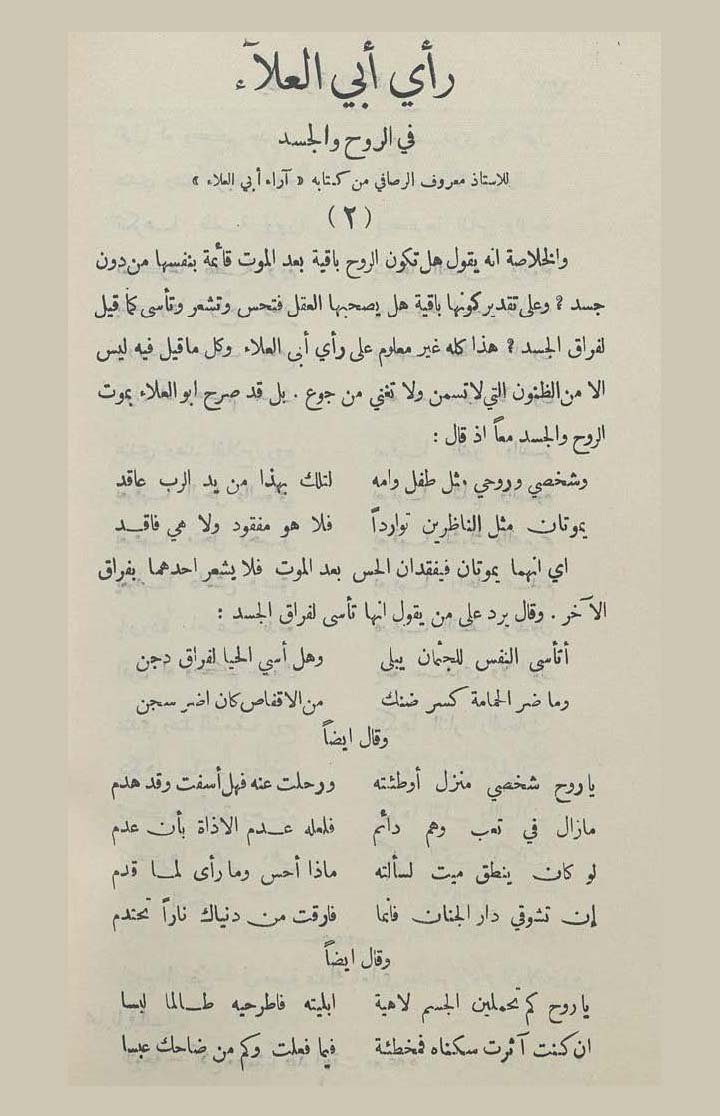 رأي أبي العلآء
في الروح والجسد
للاستاذ معروف الرصافي من كتابه « آراء أبي العلاء »
( ٢ )
والخلاصة انه يقول هل تكون الروح باقية بعد الموت قائمة بنفسها من دون
جسد ؟ وعلى تقدير كونها باقية هل يصحبها العقل فتحس وتشعر وتأسى كما قيل
لفراق الجسد ؟ هذا كله غير معلوم على رأي أبي العلاء وكل ماقيل فيه ليس
الا من الظنون التي لا تسمن ولا تغني من جوع . بل قد صرح ابو العلاء بموت
الروح والجسد معاً اذ قال :
وشخصي وروحي مثل طفل وامه لتلك بهذا من يد الرب عاقد
يموتان مثل الناظرين توارداً فلا هو مفقود ولا هي فاقد
اي انهما يموتان فيفقدان الحس بعد الموت فلا يشعر احدهما بفراق
الآخر . وقال يرد على من يقول انها تأسى لفراق الجسد :
أتأسى النفس للجثمان يبلى وهل أسي الحيا لفراق دجن
وما ضر الحمامة كسر ضنك من الاقفاص كان اضر سجن
وقال ايضاً
ياروح شخصي منزل أوطئته ورحلت عنه فهل أسفت وقد هدم
مازال في تعب وهم دائم فلعله عدم الاذاة بأن عدم
لو كان ينطق ميت لسألته ماذا أحس وما رأى لما قدم
إن تشوقي دار الجنان فانما فارقت من دنياك ناراً تحتدم
وقال ايضاً
ياروح كم تحملين الجسم لاهية ابليته فاطرحيه طالما لبسا
ان كنت آثرت سكناه فمخطئة فيما فعلت وكم من ضاحك عبسا